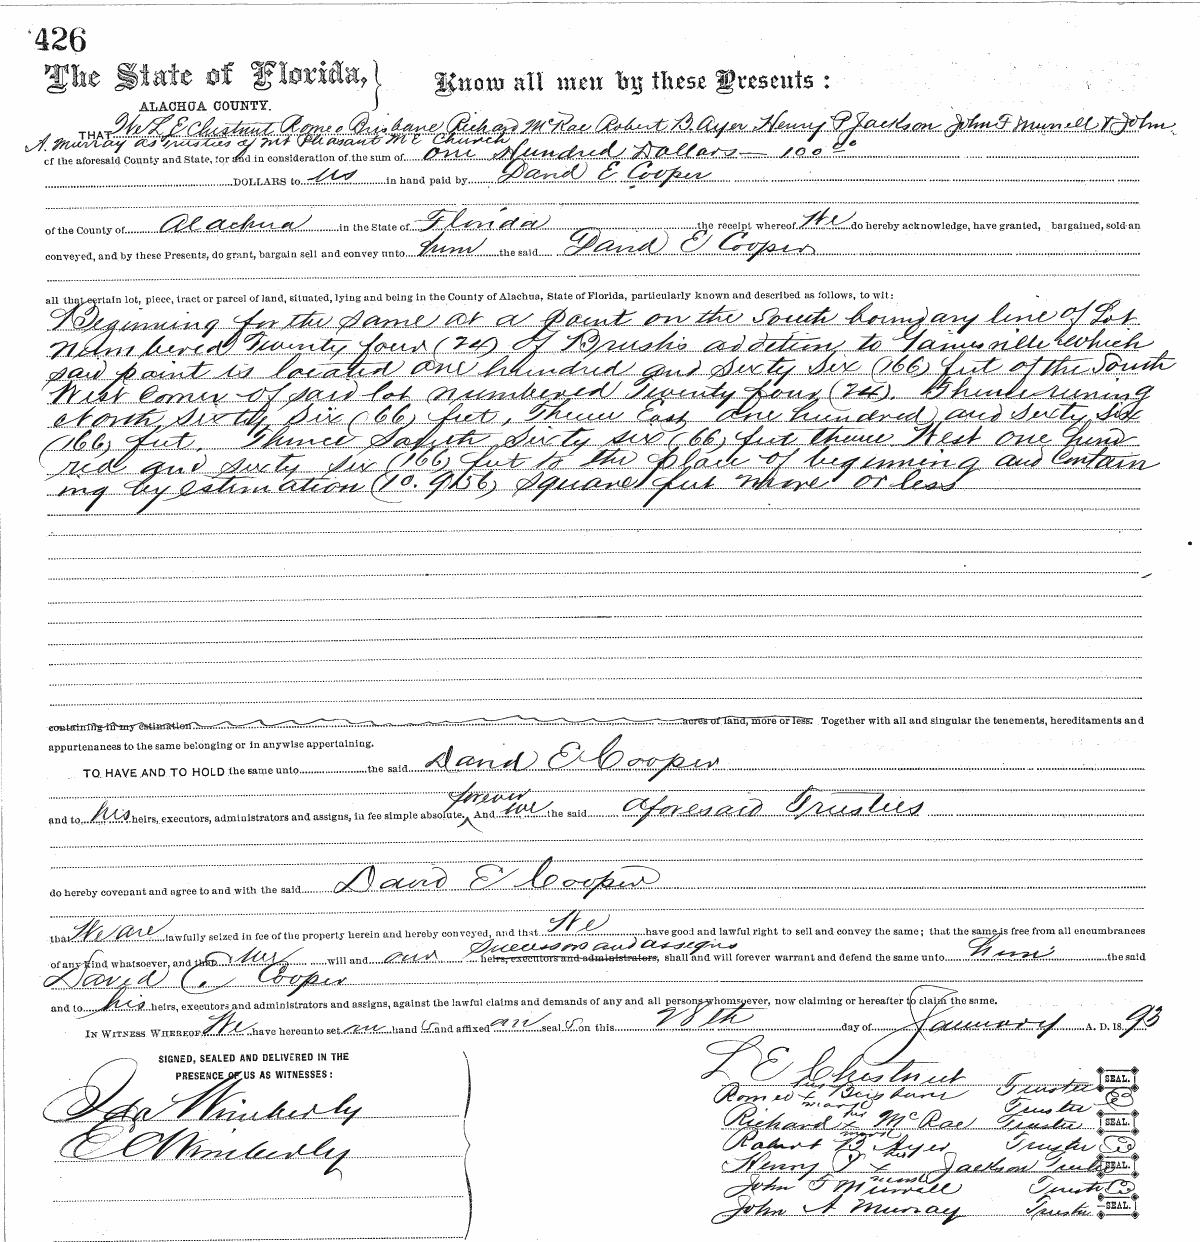 426
The State of Florida, } Know all men by these Presents:
ALACHUA COUNTY.
THAT We L E Chestnut Romeo Brisbane Richard McRae Robert B. Ayer Henry P Jackson John F Murrell & John
A. Murray as Trusties of Mt Pleasant M E Church
of the aforesaid County and State, for and in consideration of the sum of one Hundred Dollars — 100 00
DOLLARS to us in hand paid by David E Cooper
of the County of Alachua in the State of Florida the receipt whereof We do hereby acknowledge, have granted, bargained, sold an
conveyed, and by these Presents, do grant, bargain sell and convey unto him the said David E Cooper
all that certain lot, piece, tract or parcel of land, situated, lying and being in the County of Alachua, State of Florida, particularly known and described as follows, to wit:
Beginning for the same at a point on the South boundary line of Lot
Numbered Twenty four (24) of Brush's addition to Gainesville Which
said point is located one hundred and sixty six (166) feet of the South
West Corner of said lot numbered Twenty four (24). Thence runing
North, sixty six (66) feet, Thence East one hundred and sixty six
(166) feet. Thence South sixty six (66) feet thence West one hund-
red and sixty six (166) feet to the place of beginning and Contain
ing by estimation (10.956) square feet more or less
containing in my estimation acres of land, more or less. Together with all and singular the tenements, hereditaments and
appurtenances to the same belonging or in anywise appertaining.
TO HAVE AND TO HOLD the same unto the said David E Cooper
forever
and to his heirs, executors, administrators and assigns, in fee simple absolute, And we the said aforesaid Trusties
do hereby covenant and agree to and with the said David E Cooper
that We are lawfully seized in fee of the property herein and hereby conveyed, and that We have good and lawful right to sell and convey the same; that the same is free from all encumbrances
successors and assigns
of any kind whatsoever, and that we will and our heirs, executors and administrators, shall and will forever warrant and defend the same unto him the said
David E. Cooper
and to his heirs, executors and administrators and assigns, against the lawful claims and demands of any and all persons whomsoever, now claiming or hereafter to claim the same.
IN WITNESS WHEREOF We have hereunto set our hand s and affixed our seal s on this 28th day of January A. D. 18 93
SIGNED, SEALED AND DELIVERED IN THE
PRESENCE OF US AS WITNESSES:
Ida Wimberly
E C Wimberly
L E Chestnut Trustee SEAL.
his
Romeo x Brisbane Trustee
mark his
Richard x McRae Trustee SEAL.
mark
Robert B. Ayer Trustee
his
Henry P x Jackson Trustee SEAL.
mark
John F Murrell Trustee
John A Murray Trustee SEAL.